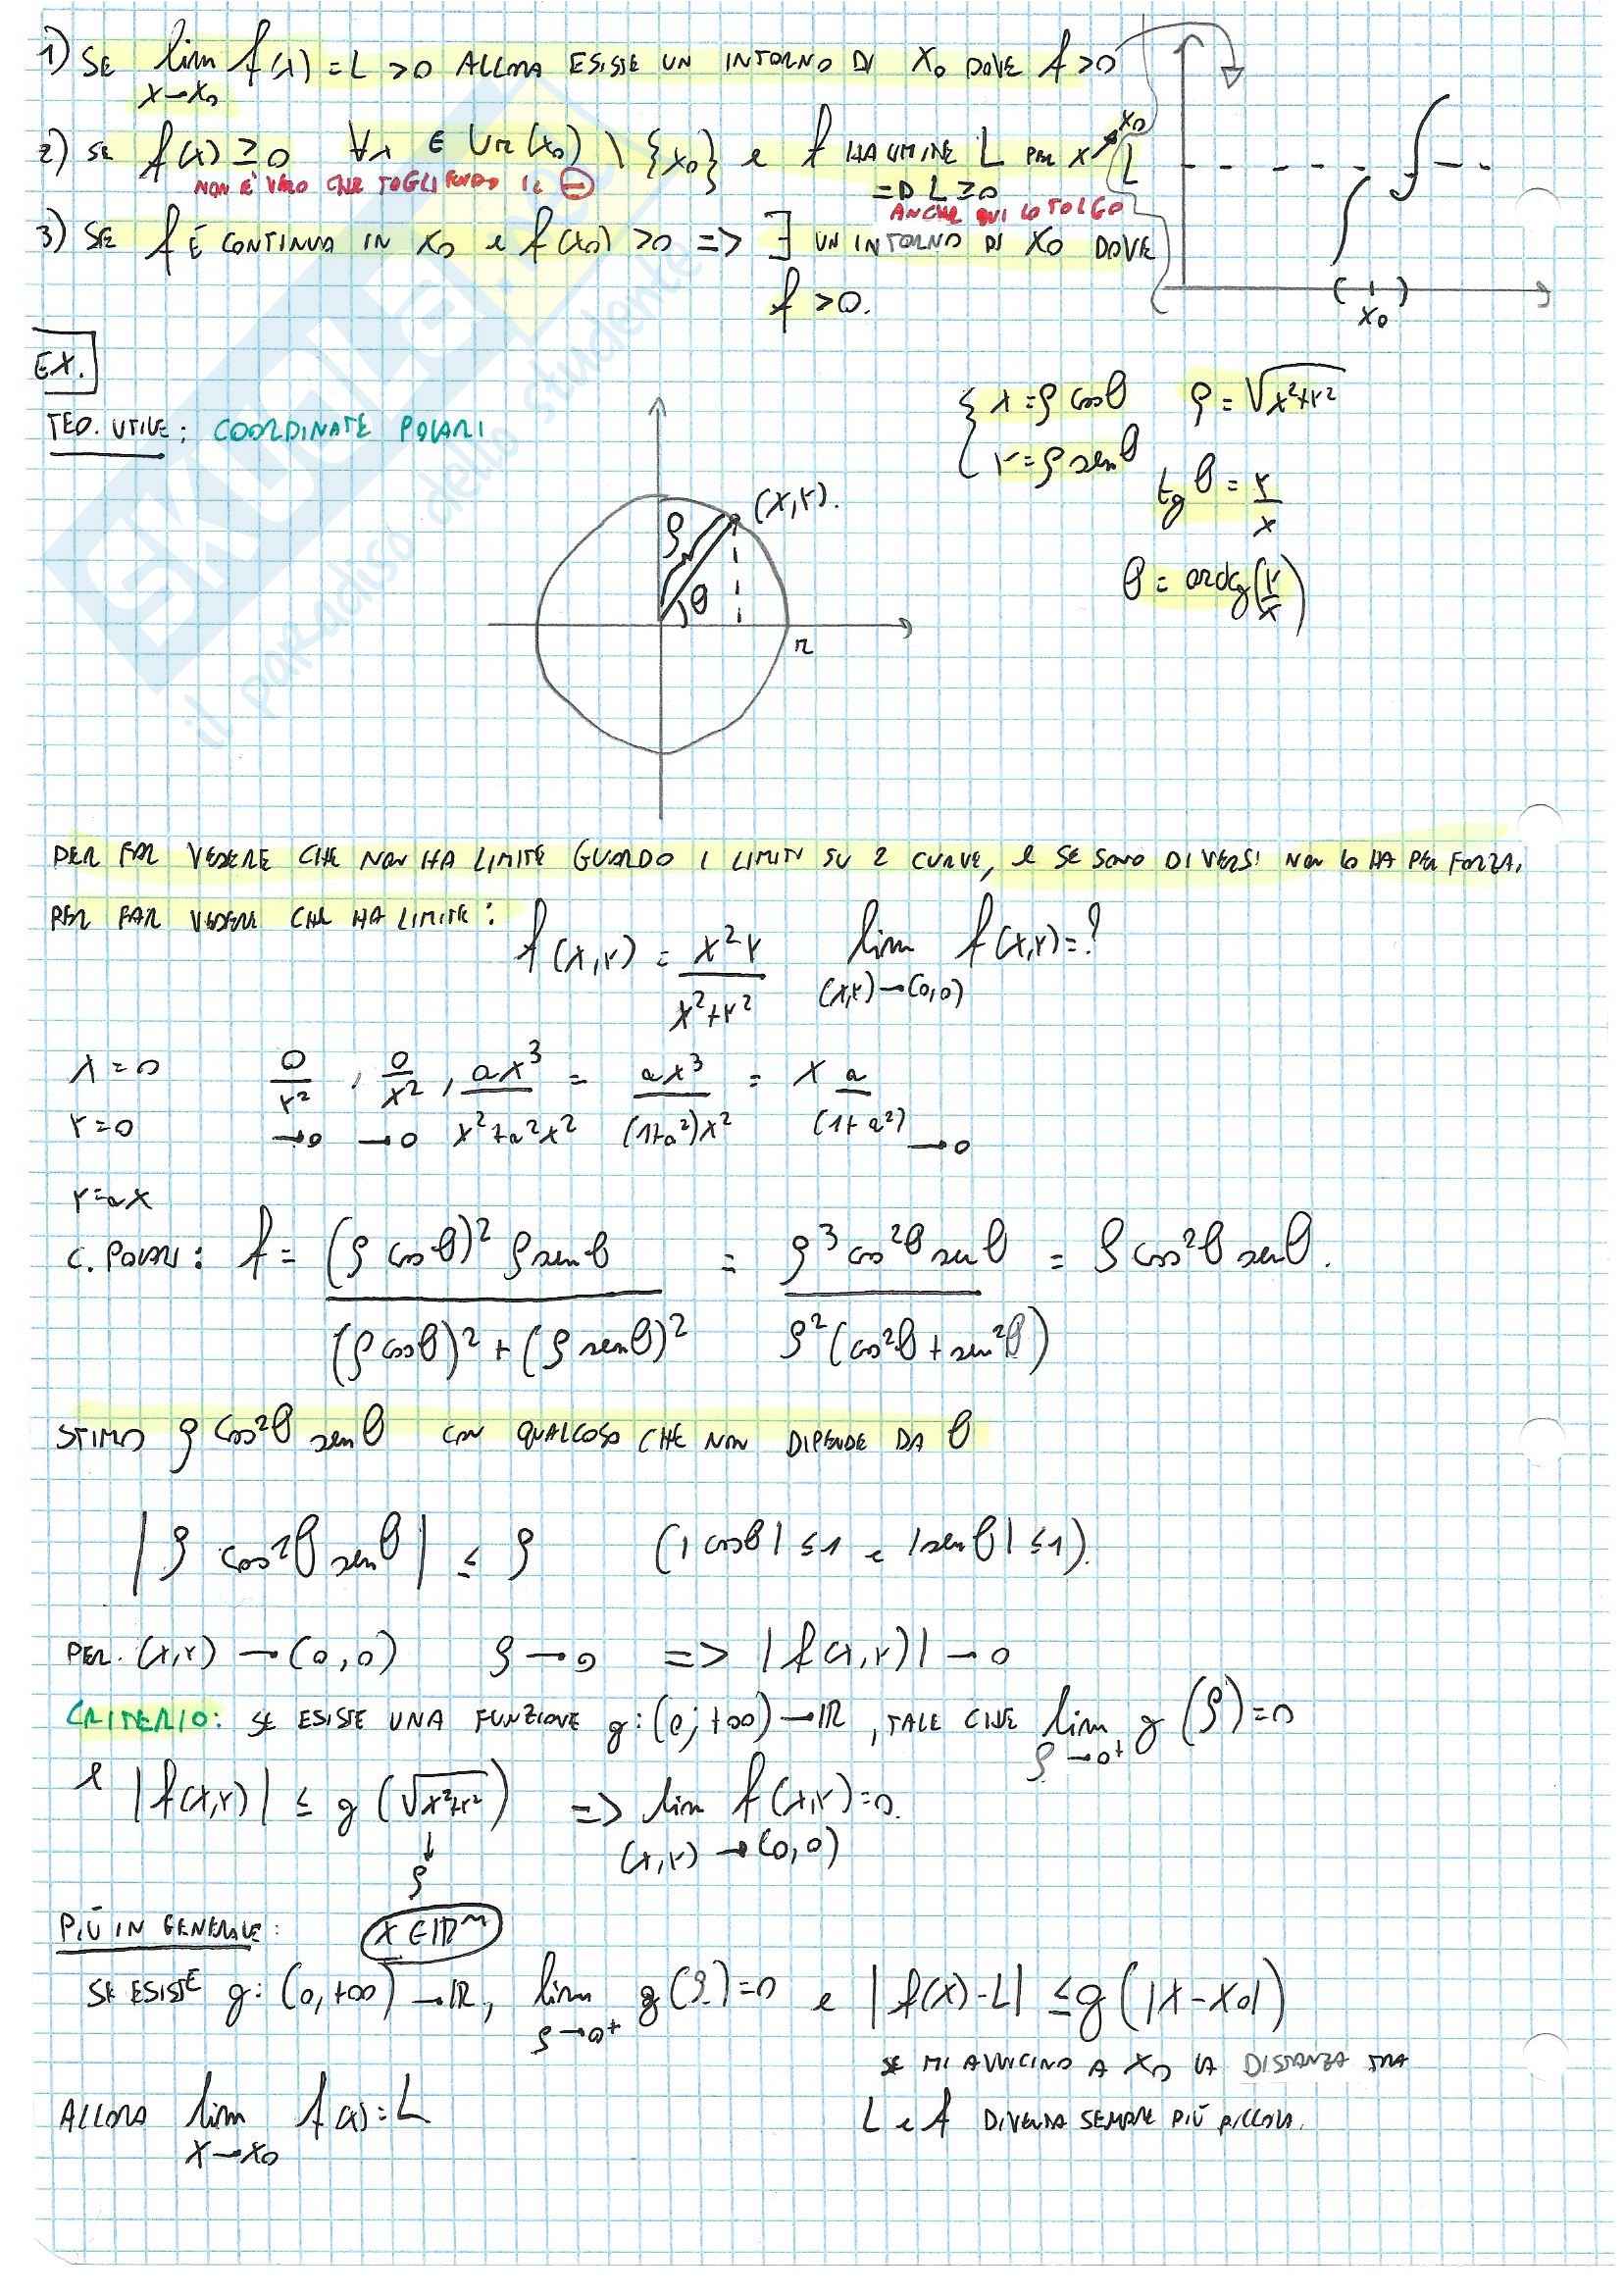 1) SE lim f(x) = L > 0 ALLORA ESISTE UN INTORNO DI X₀ DOVE f > 0
x→x₀
2) SE f(x) ≥ 0 ∀x ∈ Ur(x₀) \ {x₀} e f HA LIMITE L PER x→x₀
=> L ≥ 0
NON È VERO CHE TOGLIENDO IL (=)
ANCHE QUI LO TOLGO
3) SE f È CONTINUA IN X₀ e f(x₀) > 0 => ∃ UN INTORNO DI X₀ DOVE
f > 0.
L
( )
x₀
EX.
TEO. UTILE: COORDINATE POLARI
{ x = ρ cosθ ρ = √x²+y²
y = ρ senθ
tg θ = y/x
θ = arctg(y/x)
(x,y).
ρ
θ
r
PER FAR VEDERE CHE NON HA LIMITE GUARDO I LIMITI SU 2 CURVE, e SE SONO DIVERSI NON LO HA PER FORZA.
PER FAR VEDERE CHE HA LIMITE: f(x,y) = x²y / x²+y² lim f(x,y) = ?
(x,y)→(0,0)
x = 0 0/y² , 0/x² , ax³ / x²+a²x² = ax³ / (1+a²)x² = x a / (1+a²) → 0
y = 0 → 0 → 0
y = ax
C. POLARI: f = (ρ cosθ)² ρ senθ / (ρ cosθ)² + (ρ senθ)² = ρ³ cos²θ senθ / ρ²(cos²θ + sen²θ) = ρ cos²θ senθ.
STIMO ρ cos²θ senθ CON QUALCOSA CHE NON DIPENDE DA θ
|ρ cos²θ senθ| ≤ ρ (|cosθ| ≤ 1 e |senθ| ≤ 1).
PER. (x,y) → (0,0) ρ → 0 => |f(x,y)| → 0
CRITERIO: SE ESISTE UNA FUNZIONE g: (0; +∞) → ℝ, TALE CHE lim g(ρ) = 0
ρ→0⁺
e |f(x,y)| ≤ g(√x²+y²) => lim f(x,y) = 0.
↓ (x,y)→(0,0)
ρ
PIÙ IN GENERALE: x ∈ ℝⁿ
SE ESISTE g: (0, +∞) → ℝ, lim g(ρ) = 0 e |f(x) - L| ≤ g(|x - x₀|)
ρ→0⁺
SE MI AVVICINO A X₀ LA DISTANZA TRA
ALLORA lim f(x) = L L e f DIVENTA SEMPRE PIÙ PICCOLA.
x→x₀
SKUOLA
il paradiso dello studente